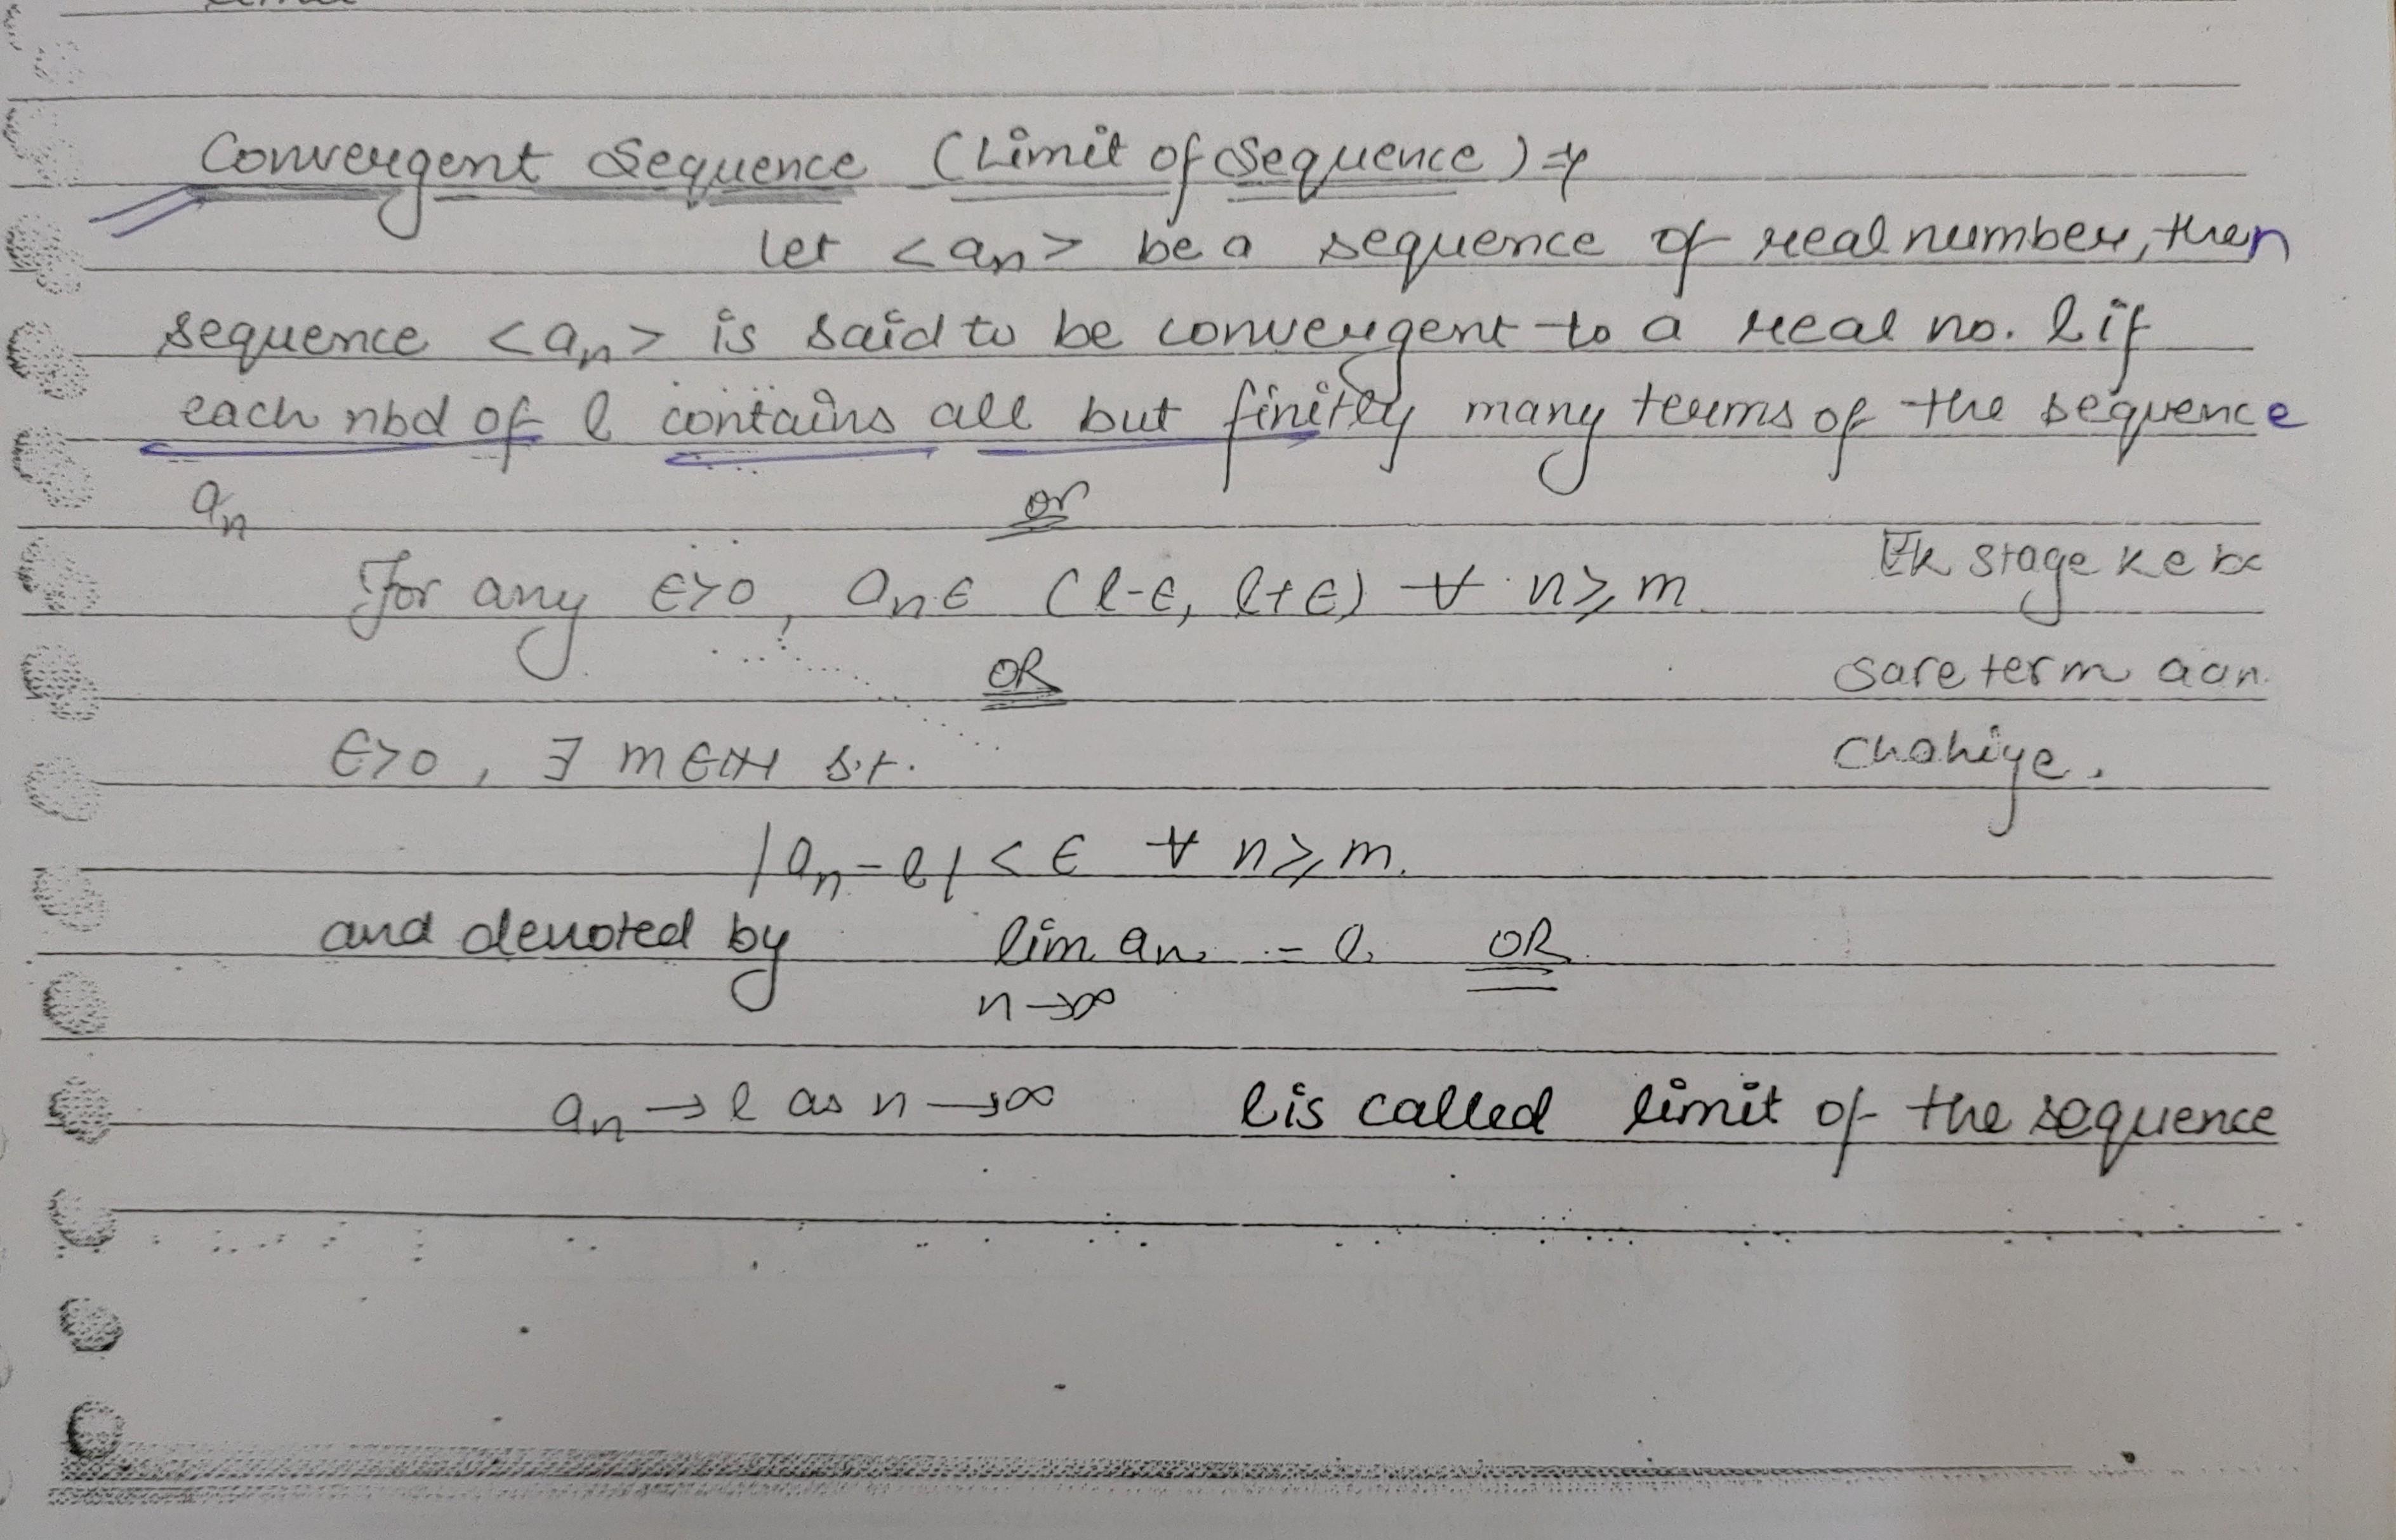 Convergent Sequence (Limit of Sequence) ⇒
Let <aₙ> be a sequence of real number, then
sequence <aₙ> is said to be convergent to a real no. l if
each nbd of l contains all but finitly many terms of the sequence
aₙ or
For any ϵ>0, aₙ ϵ (l-ϵ, l+ϵ) ∀ n≥m
Ek stage ke
OR
sare term
ϵ>0, ∃ m ϵ ℕ s.t.
chahiye.
|aₙ-l| < ϵ ∀ n≥m.
and denoted by lim aₙ = l. OR
n→∞
aₙ → l as n→∞ l is called limit of the sequence